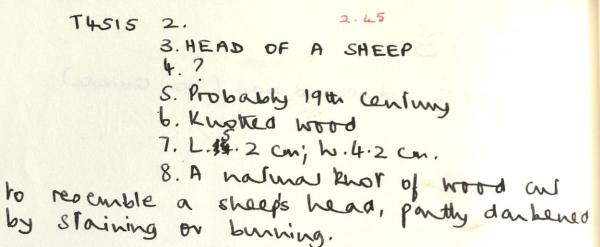 T4515 2. 2.45
3. HEAD OF A SHEEP
4. ?
5. Probably 19th century
6. Knotted wood
7. L. 5.2 cm; W. 4.2 cm.
8. A natural knot of wood cut
to resemble a sheeps head, partly darkened
by staining or burning.